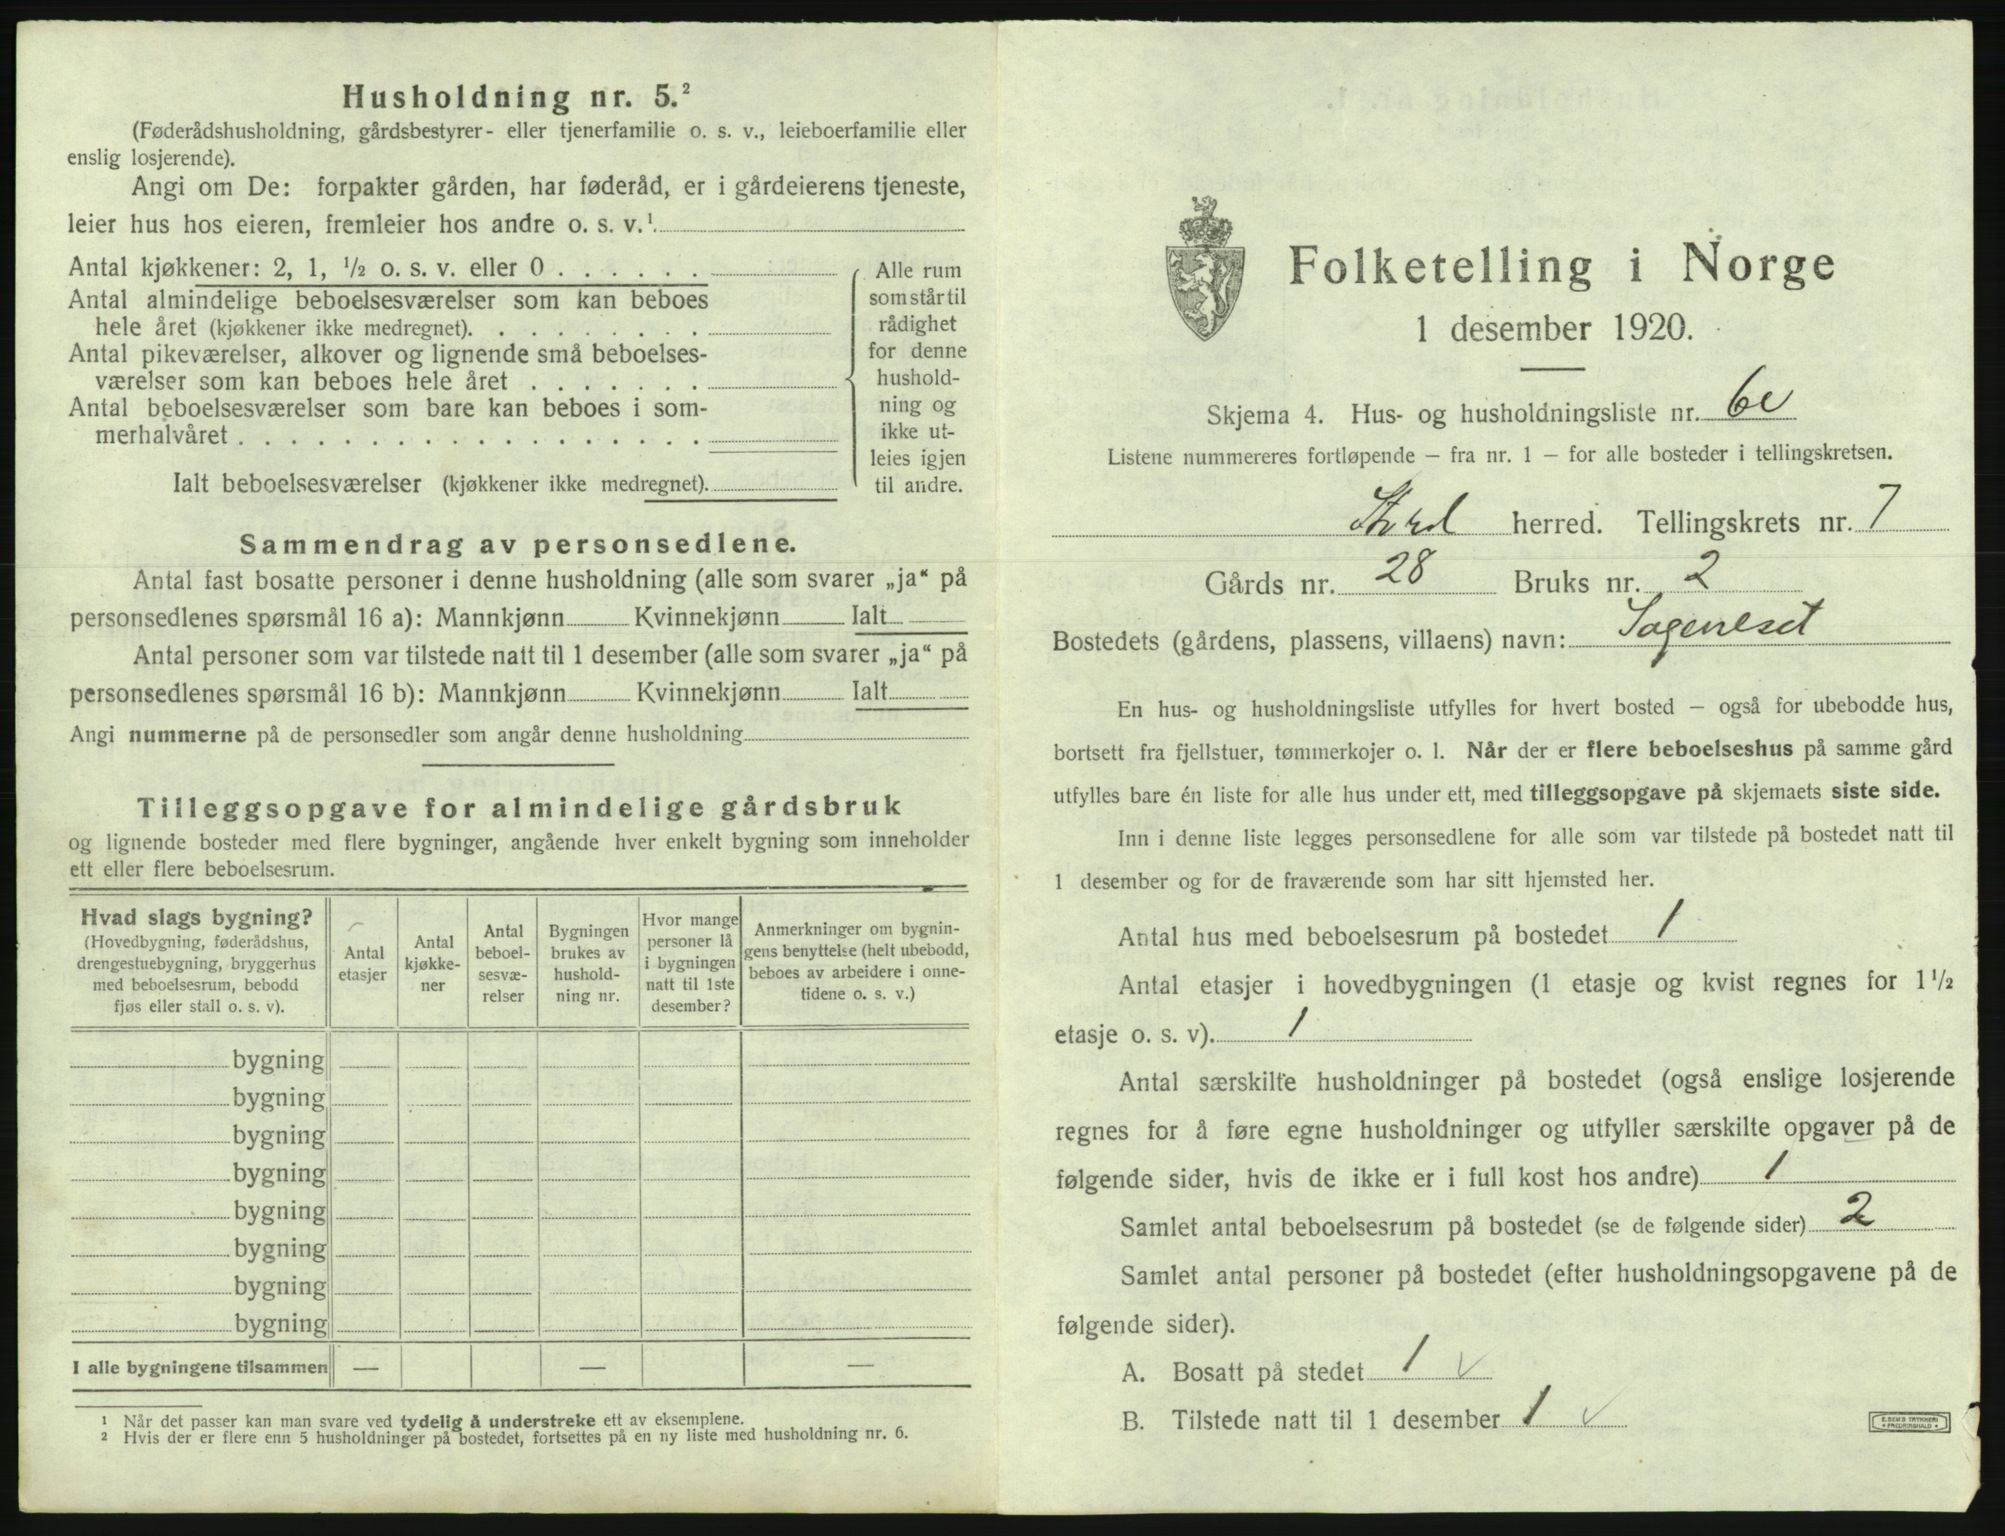 Husholdning nr. 5.²
(Føderådshusholdning, gårdsbestyrer- eller tjenerfamilie o. s. v., leieboerfamilie eller
enslig losjerende).
Angi om De: forpakter gården, har føderåd, er i gårdeierens tjeneste,
leier hus hos eieren, fremleier hos andre o. s. v.¹
Antal kjøkkener: 2, 1, ½ o. s. v. eller 0 . . . . . .
Antal almindelige beboelsesværelser som kan beboes
hele året (kjøkkener ikke medregnet). . . . . . . . .
Antal pikeværelser, alkover og lignende små beboelses-
værelser som kan beboes hele året . . . . . . .
Antal beboelsesværelser som bare kan beboes i som-
merhalvåret . . . . . . . . . . . . . . . . . .
Ialt beboelsesværelser (kjøkkener ikke medregnet).
Alle rum
som står til
rådighet
for denne
hushold-
ning og
ikke ut-
leies igjen
til andre.
Sammendrag av personsedlene.
Antal fast bosatte personer i denne husholdning (alle som svarer „ja“ på
personsedlenes spørsmål 16 a): Mannkjønn Kvinnekjønn Ialt
Antal personer som var tilstede natt til 1 desember (alle som svarer „ja“ på
personsedlenes spørsmål 16 b): Mannkjønn Kvinnekjønn Ialt
Angi nummerne på de personsedler som angår denne husholdning
Tilleggsopgave for almindelige gårdsbruk
og lignende bosteder med flere bygninger, angående hver enkelt bygning som inneholder
ett eller flere beboelsesrum.
Hvad slags bygning?
(Hovedbygning, føderådshus,
drengestuebygning, bryggerhus
med beboelsesrum, bebodd
fjøs eller stall o. s. v).
Antal
etasjer
Antal
kjøkke-
ner
Antal
beboel-
sesvæ-
relser
Bygningen
brukes av
hushold-
ning nr.
Hvor mange
personer lå
i bygningen
natt til 1ste
desember?
Anmerkninger om bygnin-
gens benyttelse (helt ubebodd,
beboes av arbeidere i onne-
tidene o. s. v.)
bygning
bygning
bygning
bygning
bygning
bygning
bygning
bygning
I alle bygningene tilsammen — — —
¹ Når det passer kan man svare ved tydelig å understreke ett av eksemplene.
² Hvis der er flere enn 5 husholdninger på bostedet, fortsettes på en ny liste med husholdning nr. 6.
Folketelling i Norge
1 desember 1920.
Skjema 4. Hus- og husholdningsliste nr.
Listene nummereres fortløpende — fra nr. 1 — for alle bosteder i tellingskretsen.
Stord herred. Tellingskrets nr. 7
Gårds nr. 28 Bruks nr. 2
Bostedets (gårdens, plassens, villaens) navn:
En hus- og husholdningsliste utfylles for hvert bosted — også for ubebodde hus,
bortsett fra fjellstuer, tømmerkojer o. l. Når der er flere beboelseshus på samme gård
utfylles bare én liste for alle hus under ett, med tilleggsopgave på skjemaets siste side.
Inn i denne liste legges personsedlene for alle som var tilstede på bostedet natt til
1 desember og for de fraværende som har sitt hjemsted her.
Antal hus med beboelsesrum på bostedet 1
Antal etasjer i hovedbygningen (1 etasje og kvist regnes for 1½
etasje o. s. v). 1
Antal særskilte husholdninger på bostedet (også enslige losjerende
regnes for å føre egne husholdninger og utfyller særskilte opgaver på de
følgende sider, hvis de ikke er i full kost hos andre) 1
Samlet antal beboelsesrum på bostedet (se de følgende sider) 2
Samlet antal personer på bostedet (efter husholdningsopgavene på de
følgende sider).
A. Bosatt på stedet 1 ✓
B. Tilstede natt til 1 desember 1 ✓